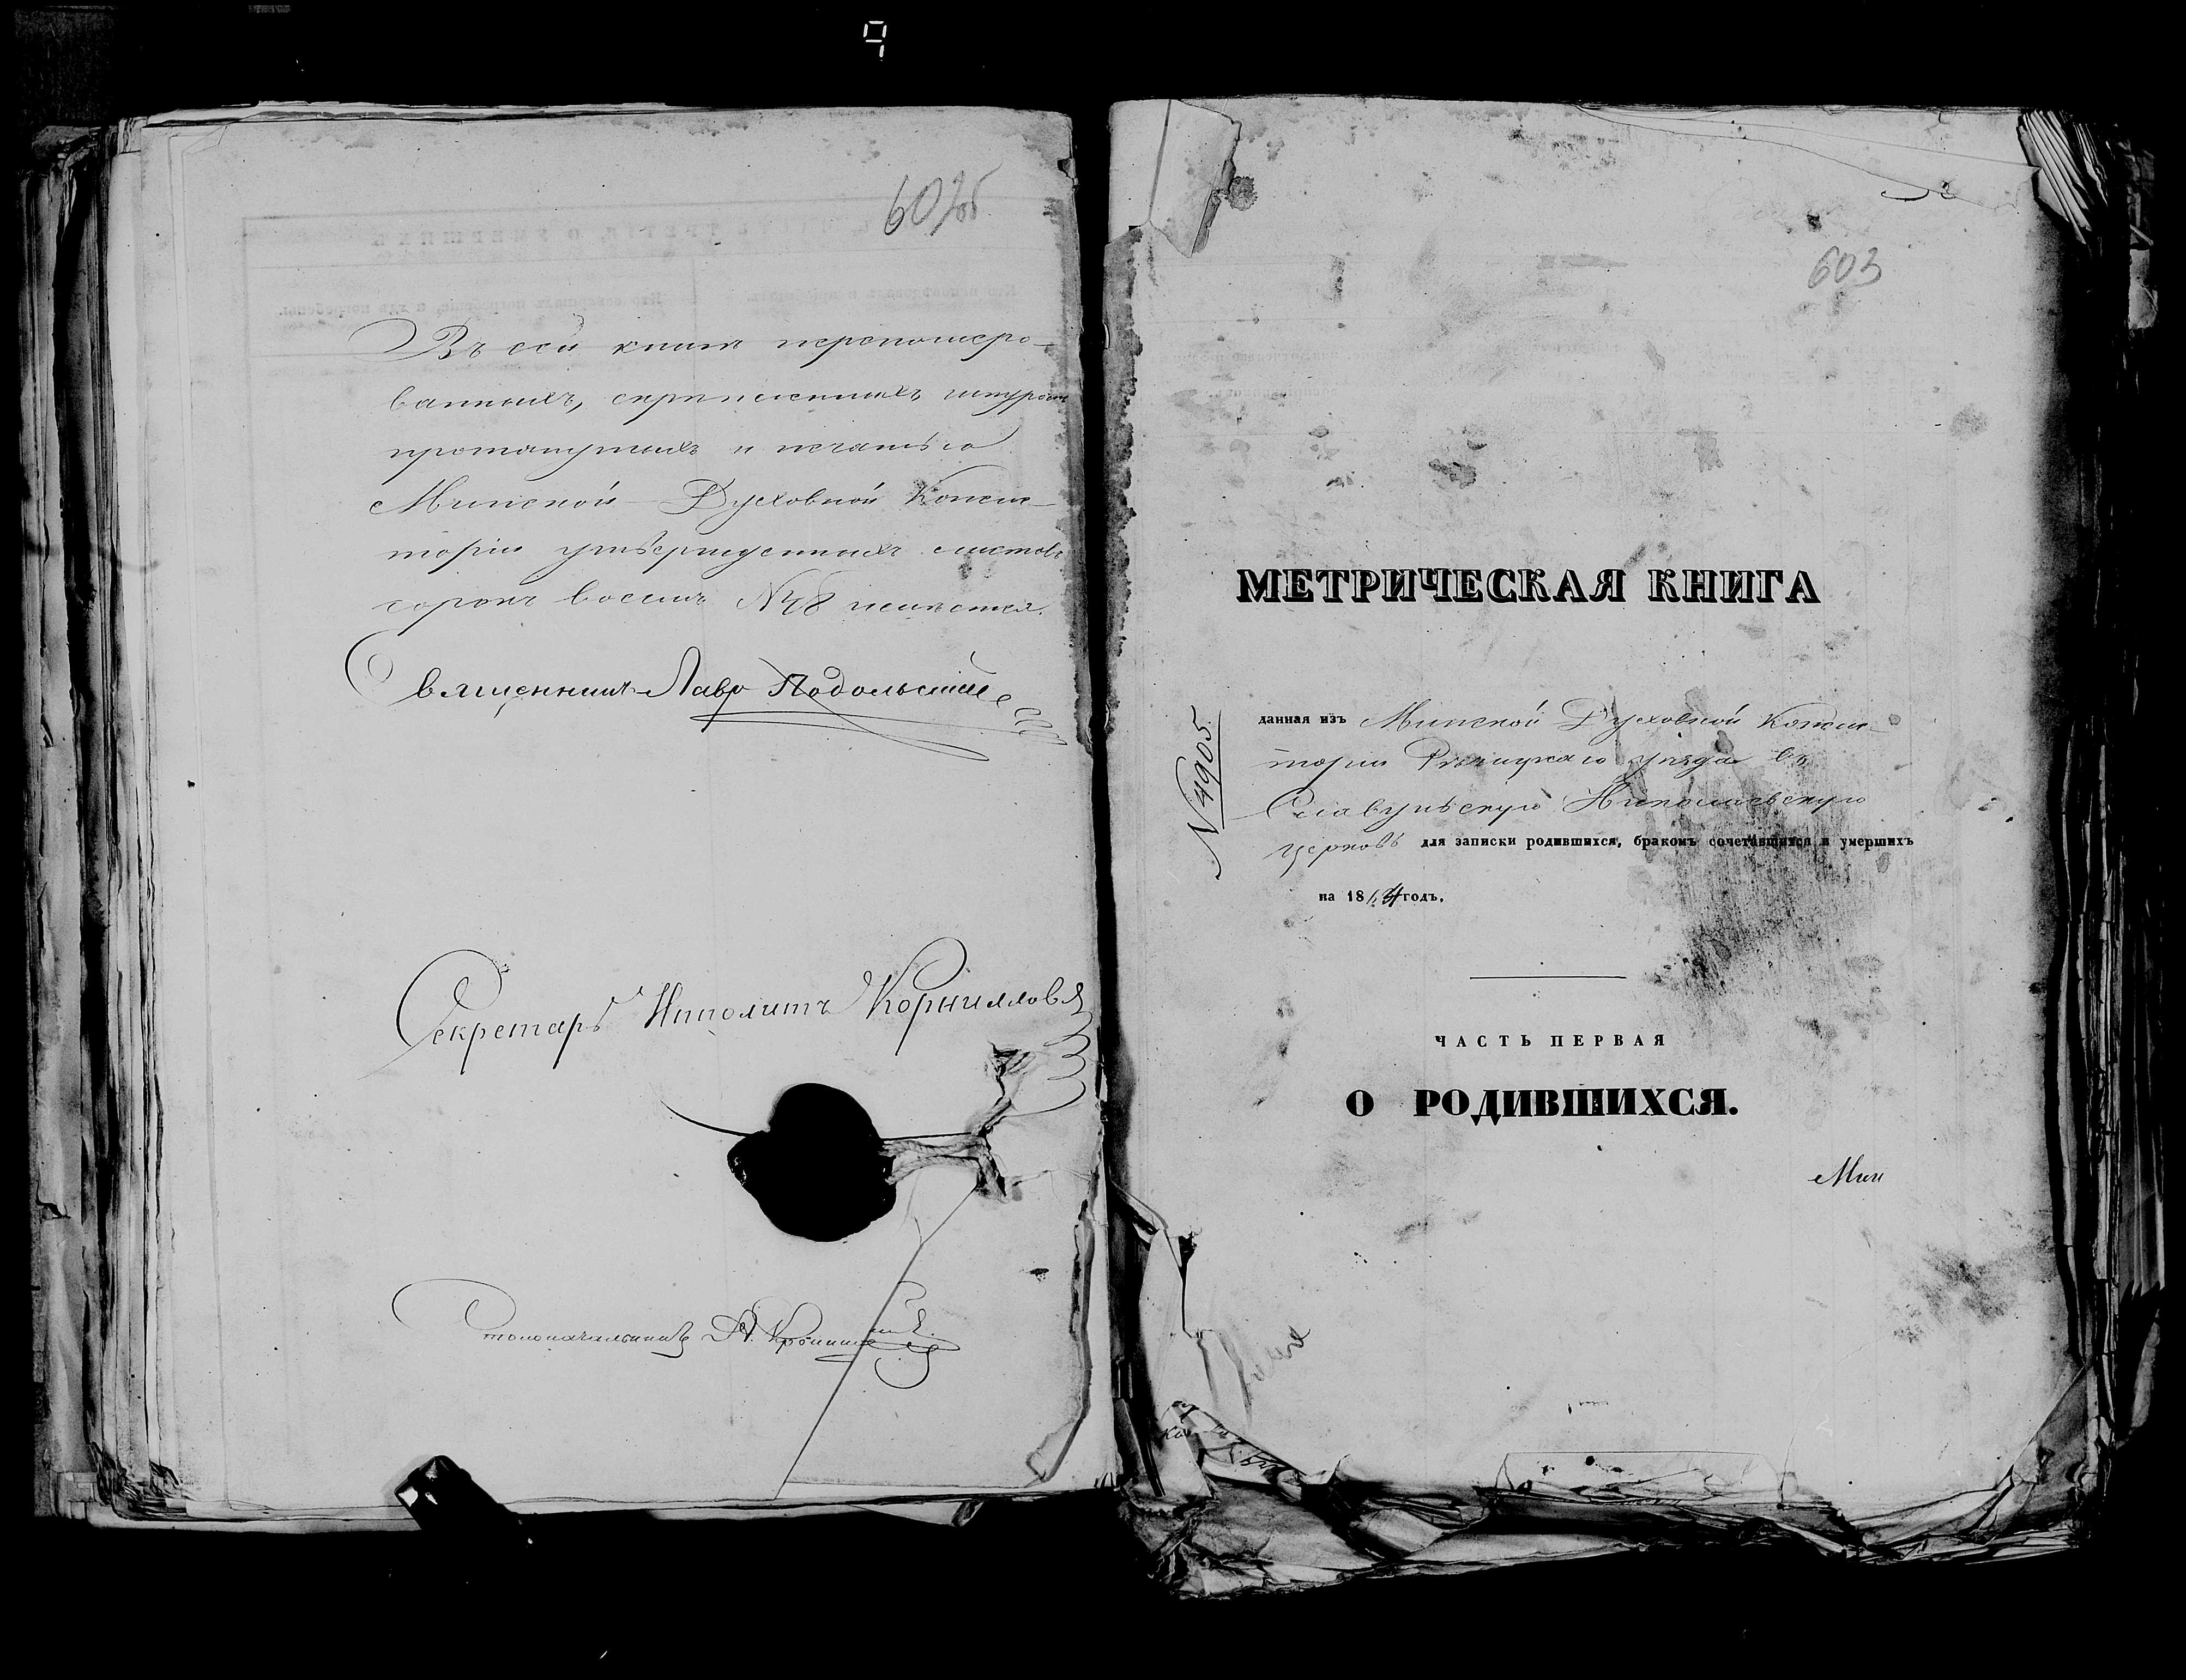 602об
Въ сей книгѣ перенумеро-
ванныхъ, скрѣпленныхъ шнуром
протянутыхъ и печатью
Минской Духовной Консис-
торіи утвержденныхъ листовъ
сорокъ восемь № 48 имѣется.
Священникъ Лавр Подольскій
Секретарь Иполитъ Корниллов
Столоначальникъ
603
МЕТРИЧЕСКАЯ КНИГА
№ 4905
данная изъ Минской Духовной Консис-
торіи Рѣчицкаго уѣзда въ
Николаевскую
церковь для записки родившихся, бракомъ сочетавшихся и умершихъ
на 18 годъ.
ЧАСТЬ ПЕРВАЯ
О РОДИВШИХСЯ.
Мин